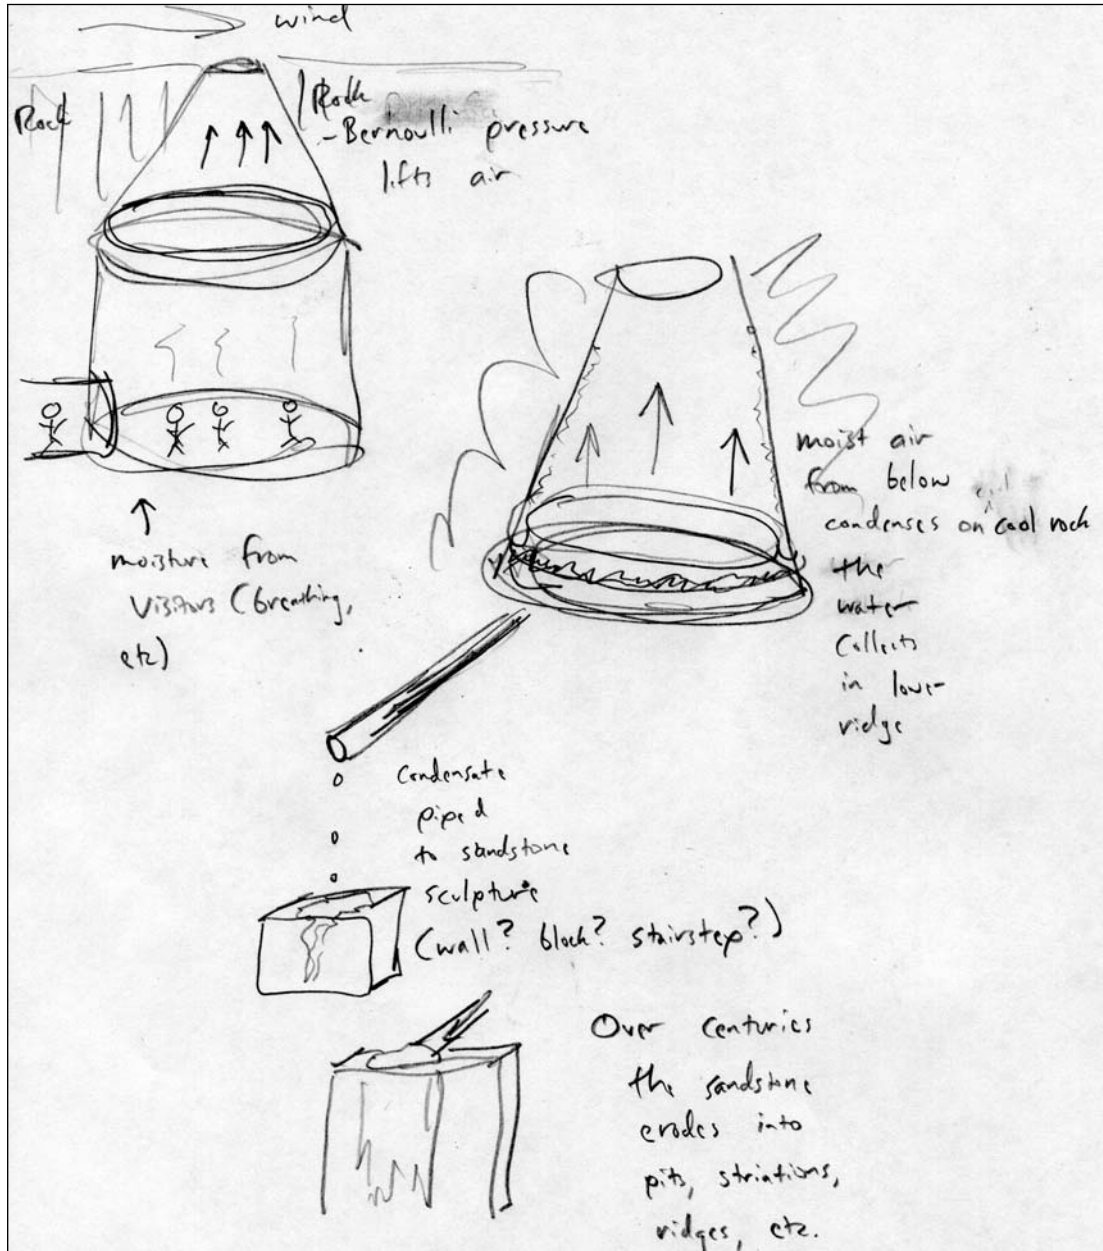 wind
Rock
Rock
- Bernoulli pressure
lifts air
moisture from
visitors (breathing,
etc)
moist air
from below
condenses on cool rock
the
water
collects
in lower
ridge
Condensate
piped
to sandstone
sculpture
(wall? block? stairstep?)
Over centuries
the sandstone
erodes into
pits, striations,
ridges, etc.